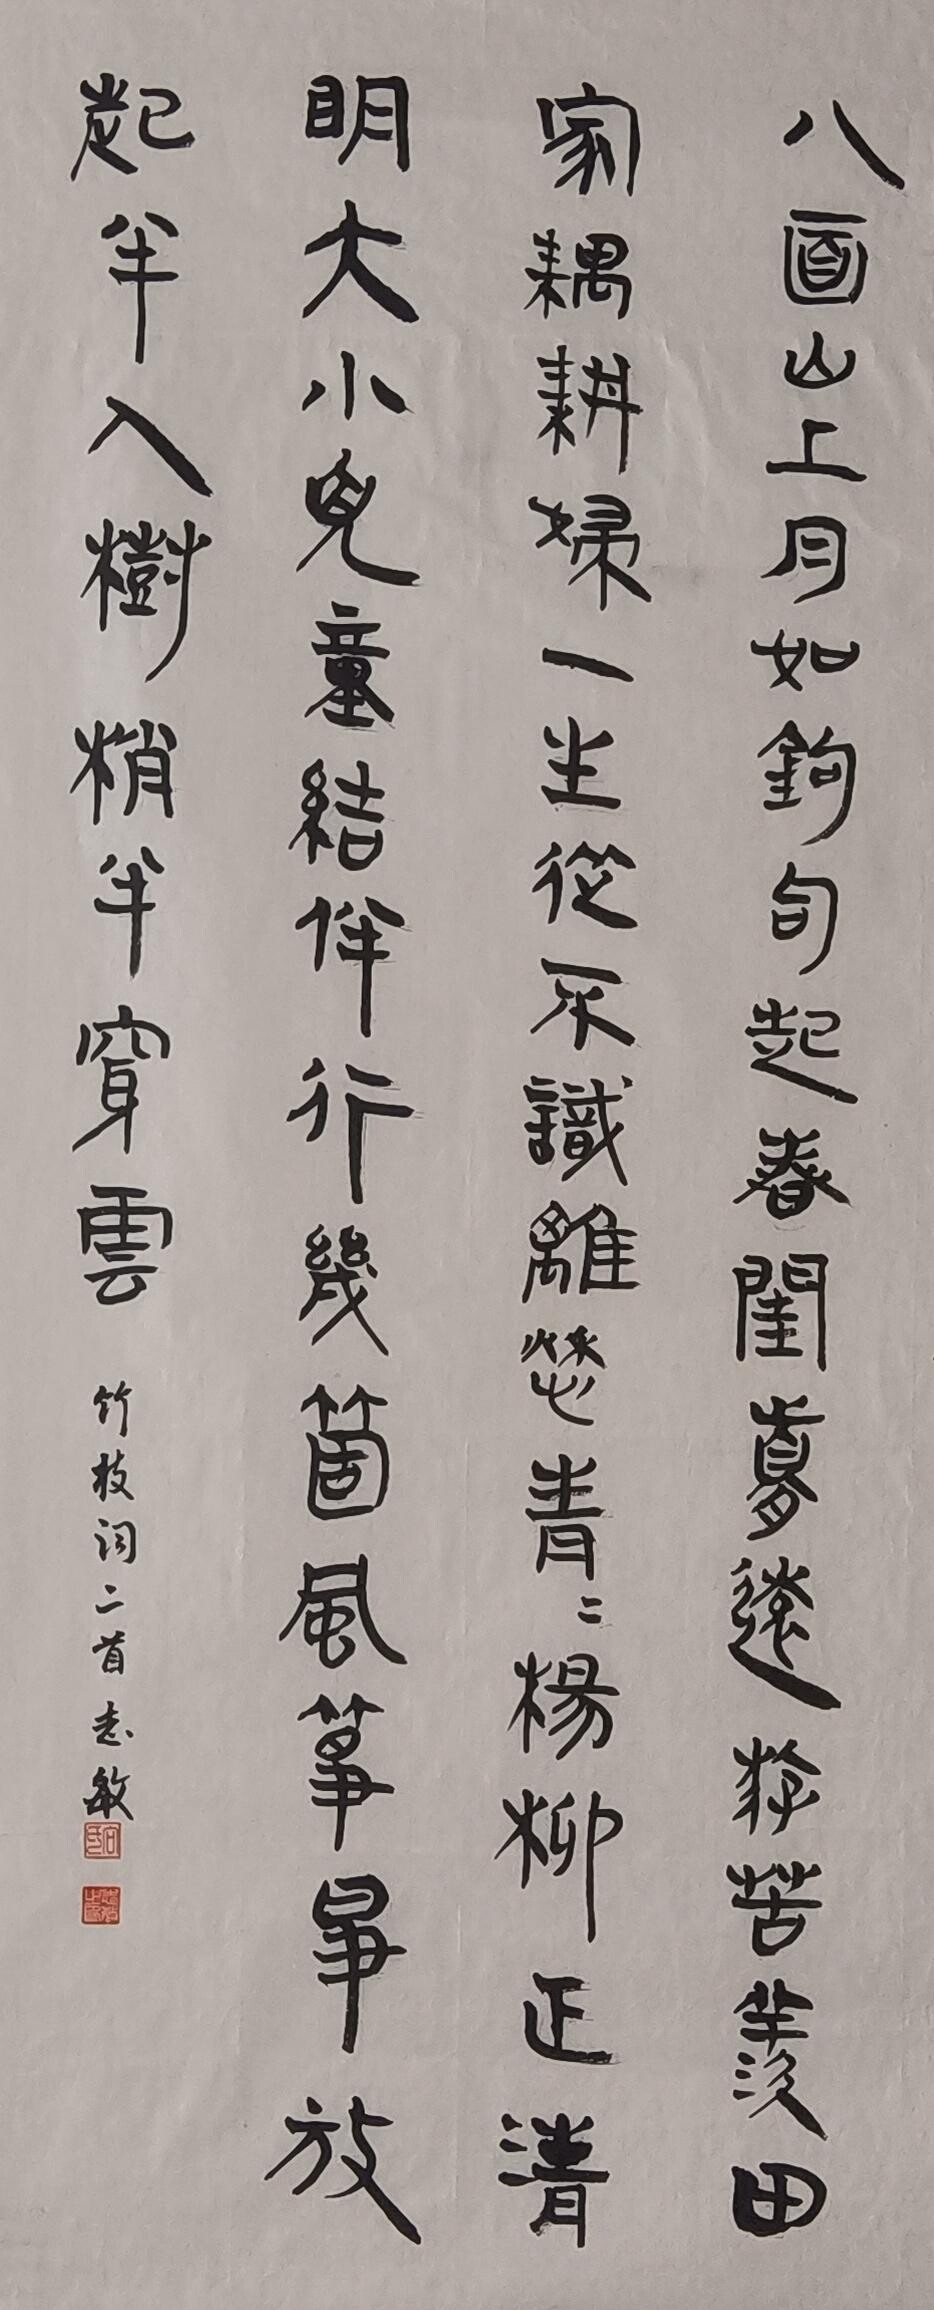 八面山上月如鉤句起春閨夢遠游苦羨田
家耦耕婦一生從不識離愁青〻楊柳正清
明大小兒童結伴行幾箇風箏爭放
起半入樹梢半穿雲 竹枝詞二首 志敏